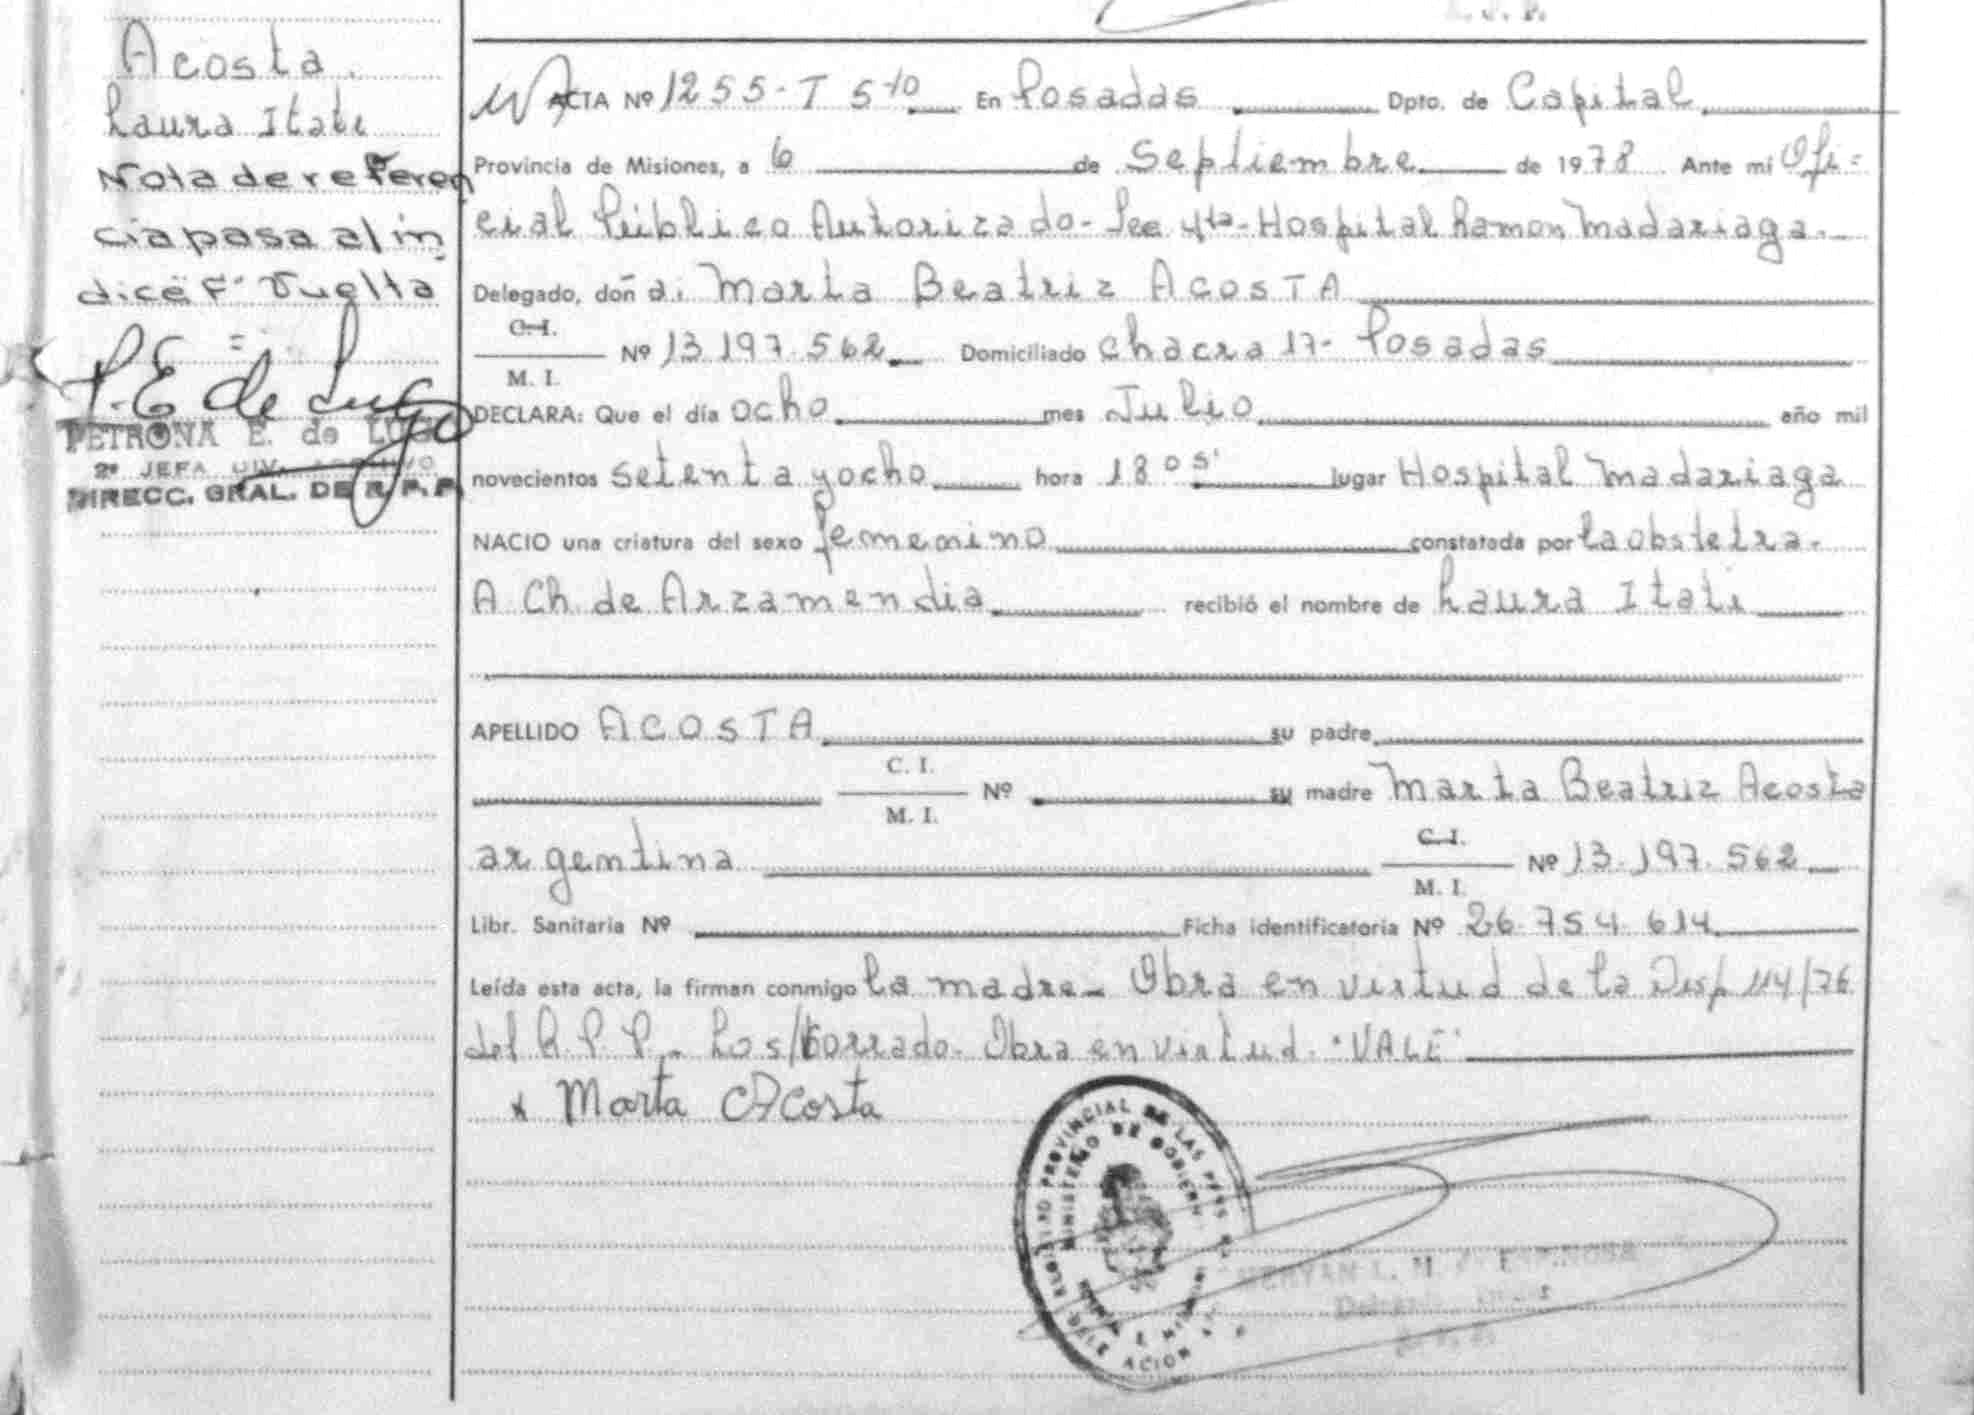 Acosta
Laura Itati
Nota de referen
cia pasa al ín
dice F Vuelta
P. E de Lugo
PETRONA E. de LUGO
2ª JEFA DIV. ARCHIVO
DIRECC. GRAL. DE R. P. P.
ACTA Nº 1255 - T 5to En Posadas Dpto. de Capital
Provincia de Misiones, a 6 de Septiembre de 1978 Ante mi Ofi=
cial Público Autorizado - Sec 4ta - Hospital Ramon Madariaga.
Delegado, doña: Marta Beatriz ACOSTA
C. I.
Nº 13.197.562 Domiciliado chacra 17 - Posadas
M. I.
DECLARA: Que el día ocho mes Julio año mil
novecientos setenta y ocho hora 18 05' lugar Hospital Madariaga
NACIO una criatura del sexo femenino constatada por la obstetra.
A Ch de Arzamendia recibió el nombre de Laura Itati
APELLIDO ACOSTA su padre
C. I.
Nº su madre Marta Beatriz Acosta
M. I.
C. I.
argentina Nº 13.197.562
M. I.
Libr. Sanitaria Nº Ficha identificatoria Nº 26.754.614
Leída esta acta, la firman conmigo la madre - Obra en virtud de la Disp 114/76
del R.P.P. - Los/borrado. Obra en virtud. "VALE"
x Marta Acosta
REGISTRO PROVINCIAL DE LAS PERS
MINISTERIO DE GOBIERN
DELEGACION
ESPINOSA